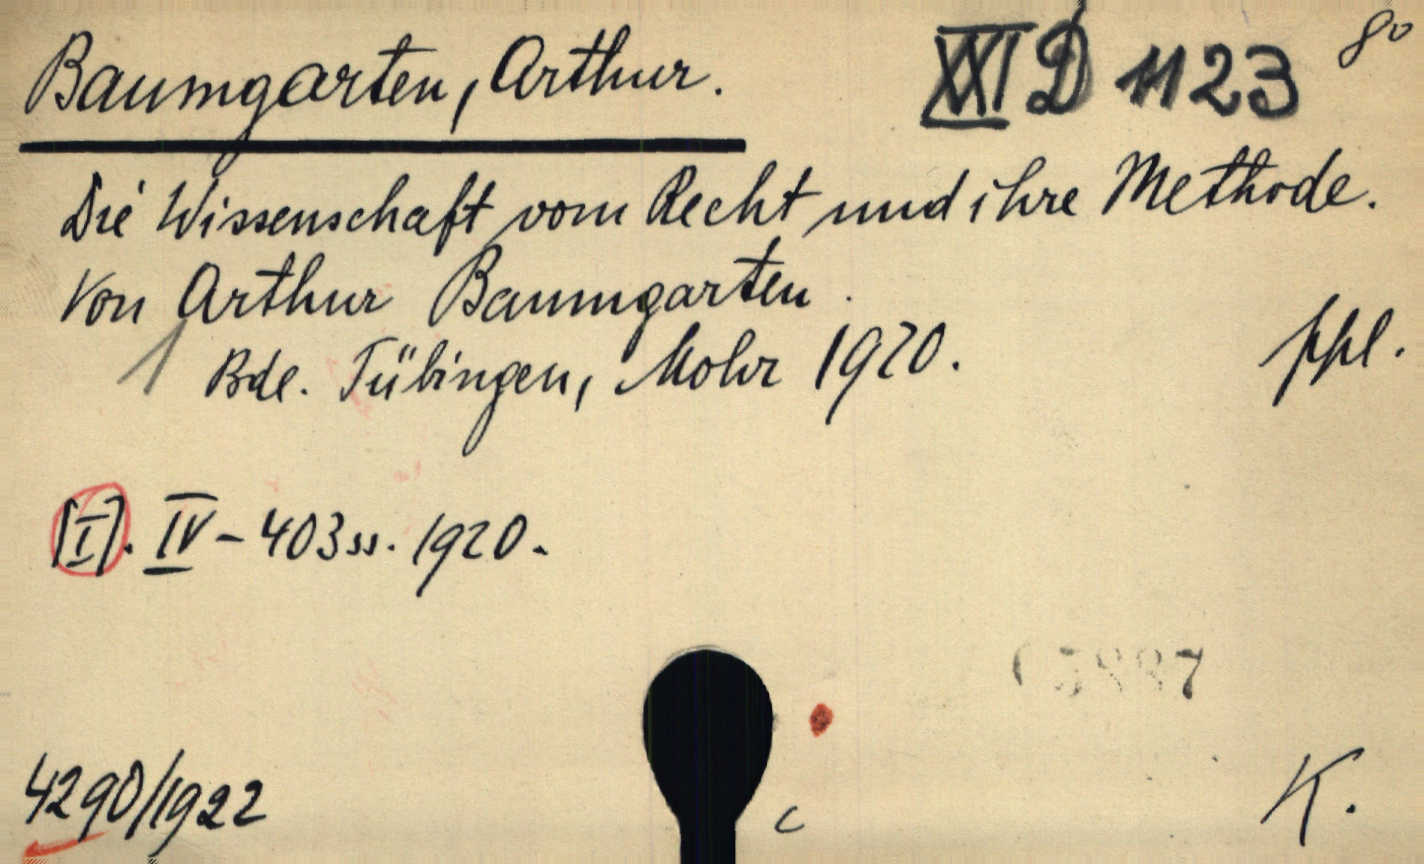 Baumgarten, Arthur. XXI D 1123 8°
Die Wissenschaft vom Recht und ihre Methode.
Von Arthur Baumgarten.
1 Bde. Tübingen, Mohr 1920. ppl.
[I]. IV - 403 ss. 1920.
4290/1922
c
K.